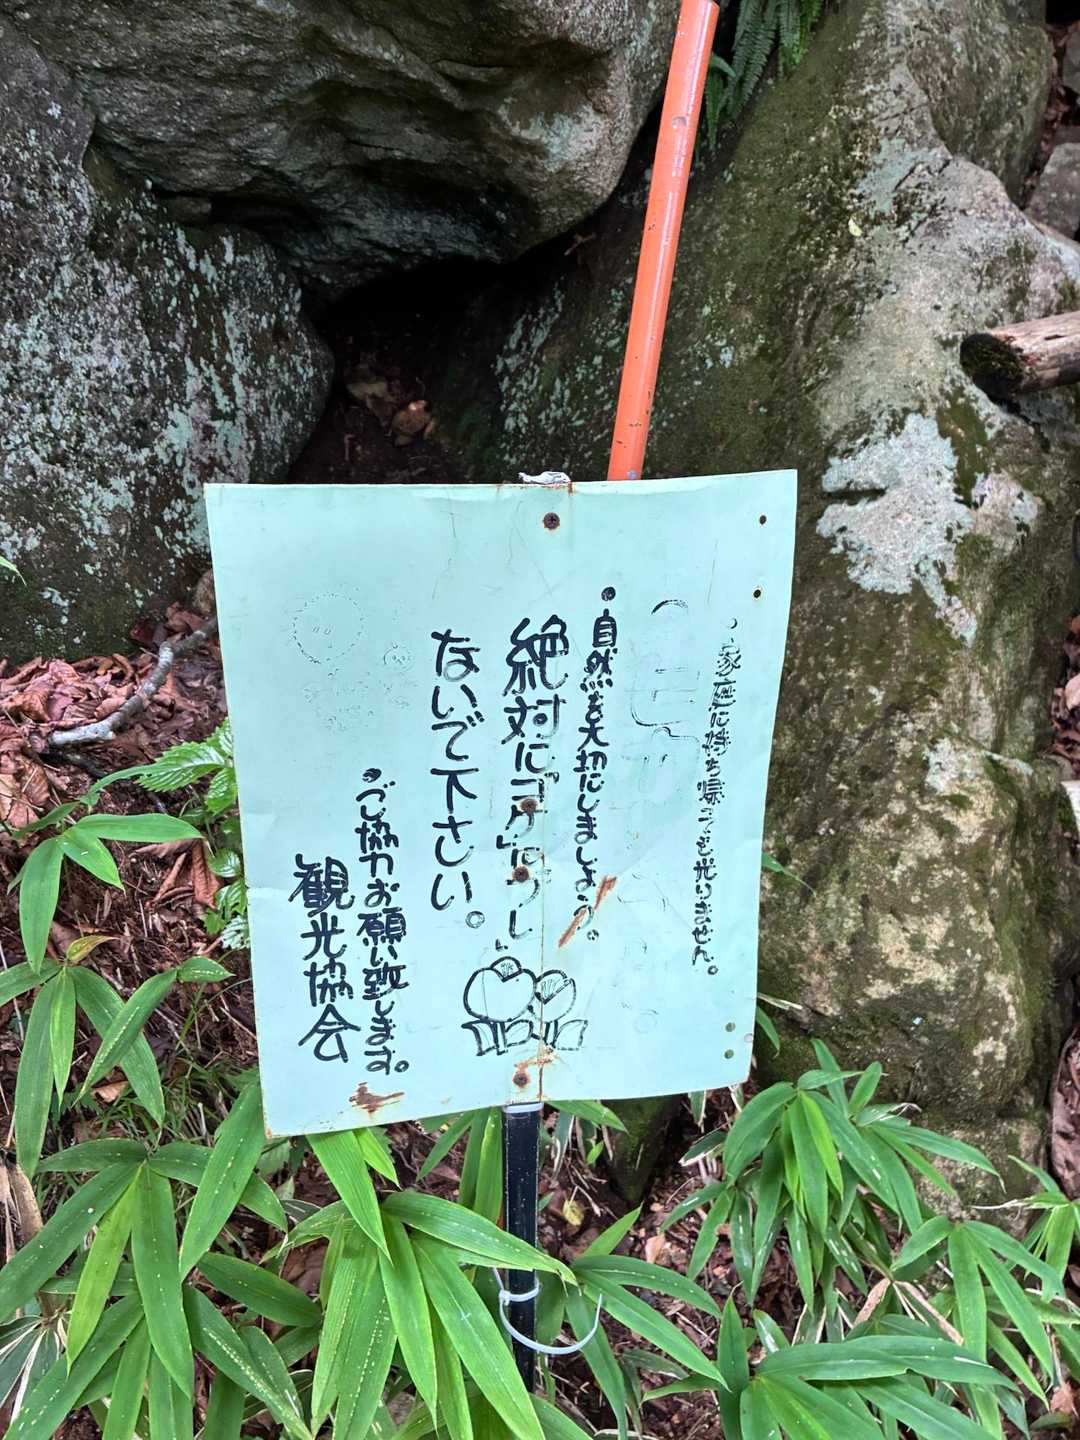 ・家庭に持ち帰っても光りません。
ヒカリゴケ
・自然を大切にしましょう。
絶対に「コケ」にフレ
ないで下さい。
・ご協力お願い致します。
観光協会